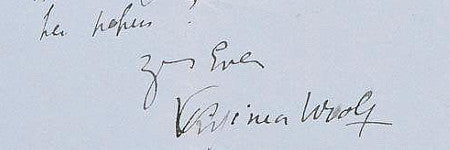 her papers?
Yrs Ever
Virginia Woolf